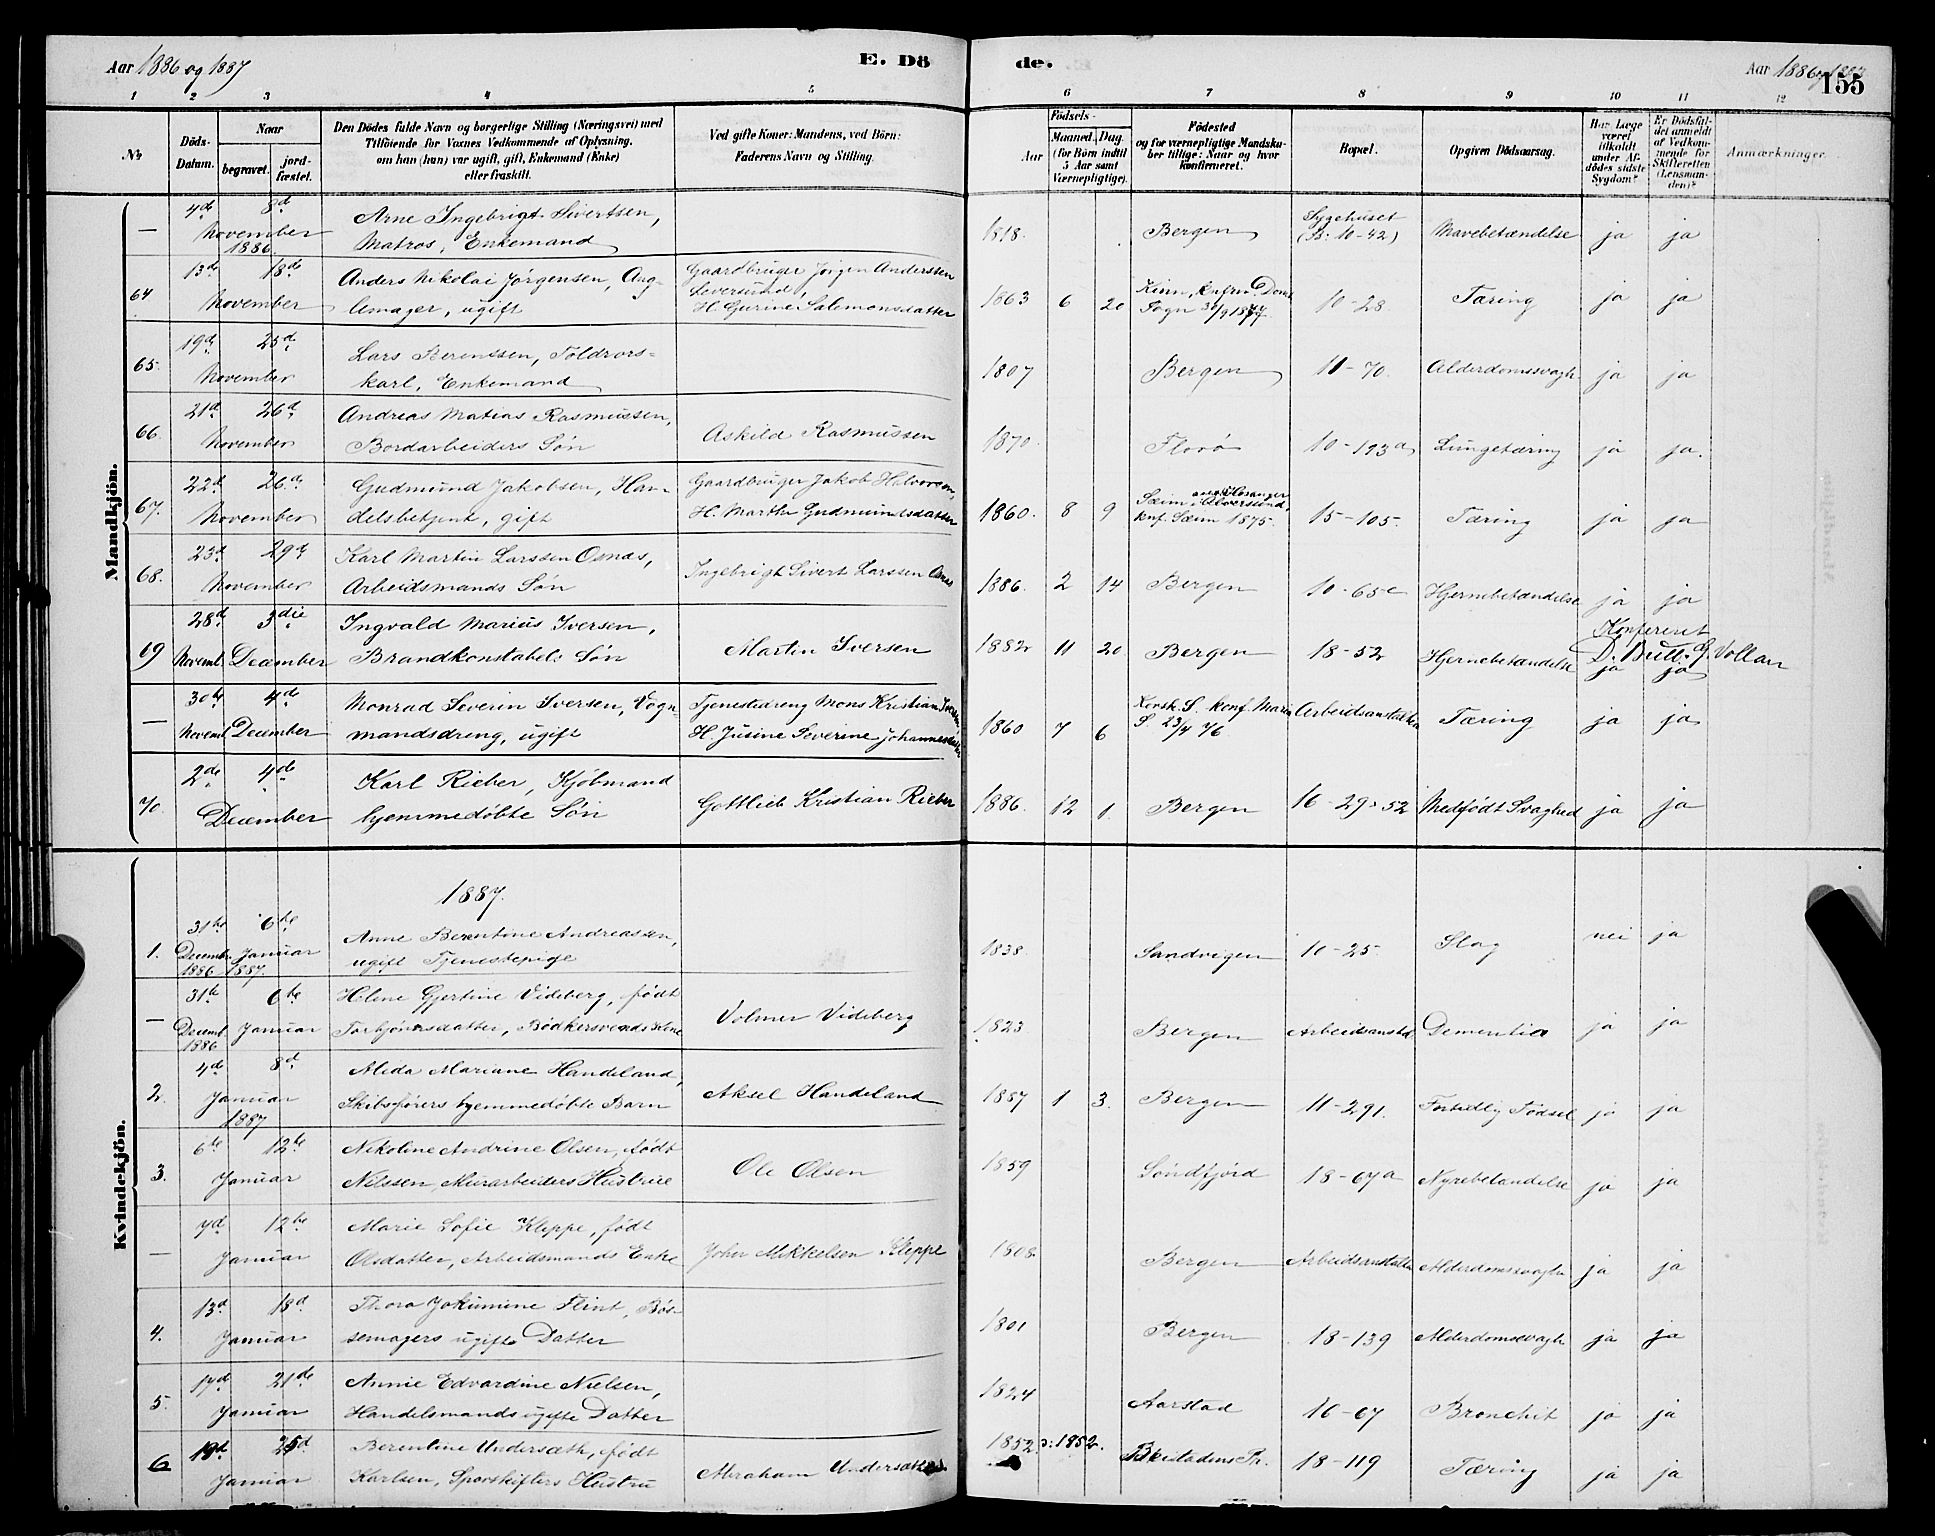 Aar 1886 og 1887
E. Dö
de.
Aar 1886 1887
155
1 2 3 4 5 6 7 8 9 10 11 12
№ Döds-Datum. Naar begravet. jord-fæstet. Den Dödes fulde Navn og borgerlige Stilling (Næringsvei) med Tilföiende for Voxnes Vedkommende af Oplysning, om han (hun) var ugift, gift, Enkemand (Enke) eller fraskilt. Ved gifte Koner: Mandens, ved Börn: Faderens Navn og Stilling. Födsels- Aar Maaned. Dag. (for Börn indtil 5 Aar samt Værnepligtige). Födested og for værnepligtige Mandsku-ber tillige: Naar og hvor konfirmeret. Bopæl. Opgiven Dödsaarsag. Har Læge været tilkaldt under Af-dödes sidste Sygdom? Er Dödsfal-det anmeldt af Vedkom-mende for Skifteretten (Lensman-den)? Anmærkninger.
Mandkjön.
— 4de 8de Arne Ingebrigt Sivertsen, 1818. Bergen Sygehuset Mavebetændelse ja ja
November 1886 Matros, Enkemand (B: 10-42)
64 13de 18de Anders Nikolai Jörgensen, Ang- Gaardbruger Jörgen Anderssen 1863 6 20 Kinn, knfrm. Domk. 10-28 Tæring ja ja
November lemager, ugift H. Gurine Salemonsdatter Sogn 30/9 1877
65. 19de 25de Lars Berentsen, Toldrors- 1807 Bergen 11-70. Alderdomssvagh. ja ja
November karl, Enkemand
66. 21de 26de Andreas Matias Rasmussen, Askild Rasmussen 1870. Florö 10-193a Lungetæring ja ja.
November Bordarbeiders Sön
67. 22de 26de Gudmund Jakobsen, Han- Gaardbruger Jakob Halvorsen, 1860. 8 9 Sæim i Alversund, 15-105. Tæring ja ja
November delsbetjent, gift H. Marthe Gudmundsdatter knf. Sæim 1875.
68. 23de 29de Karl Martin Larssen Osnæs, Ingebrigt Sivert Larssen Osnæs 1886. 2 14 Bergen 10-65c Hjernebetændelse ja ja
November Arbeidsmands Sön
69 28de 3die Ingvald Marius Iversen, Martin Iversen 1882 11 20 Bergen 18-52 Hjernebetændelse ja ja Konfereret D. Britt. G. Vollan
Novembr December Brandkonstabels Sön
— 30te 4de Monrad Severin Iversen, Vogn- Tjenestedreng Mons Kristian Iversen, 1860 7 6 Korsk. S. konf. Maria Arbeidsanstalten Tæring ja ja
Novembr December mandsdreng, ugift H. Jusine Severine Johannesdatter S. 23/4 76
70. 2de 4de Karl Rieber, Kjöbmand Gottlieb Kristian Rieber 1886. 12 1. Bergen 16-29-52 Medfödt Svaghed ja ja
December hjemmedöbte Sön
Kvindekjön.
1887.
1. 31te 6te Anne Berentine Andreassen, 1838. Sandvigen 16-25. Slag nei ja
Decembr. 1886 Januar 1887. ugift Tjenestepige
— 31te 6te Helene Gjertine Videberg, födt Volmer Videberg 1823. Bergen Arbeidsanstal Dementia ja ja
Decembr 1886 Januar Torbjörnsdatter, Bödkersvends Kone
2. 4de 8de Alida Mariane Handeland, Aksel Handeland 1887 1 3. Bergen 11-291. Fortidlig Födsel ja ja
Januar 1887 Skibsförers hjemmedöbte Barn
3. 6te 12te Nikoline Andrine Olsen, födt Ole Olsen 1859 Söndfjord 18-67a Nyrebetændelse ja ja
Januar Nilssen, Murarbeiders Hustrue
— 7de 12te Marie Sofie Kleppe, födt Joher Mikkelsen Kleppe 1808. Bergen Arbeidsanstalten Alderdomssvaghe ja ja
Januar Olsdatter, Arbeidsmands Enke
4. 13de 18de Thora Jokumine Flint, Bös- 1801 Bergen 18-139 Alderdomssvaghe ja ja
Januar semagers ugifte Datter
5. 17de 21de Annie Edvardine Nielsen, 1824 Aarstad 16-67 Bronchit ja ja
Januar Handelsmands ugifte Datter
6 19de 25de Berentine Undersæth, födt Abraham Undersæth 1852 ɔ: 1852. 18-119 Tæring ja ja
Januar Karlsen, Sporskifters Hustru